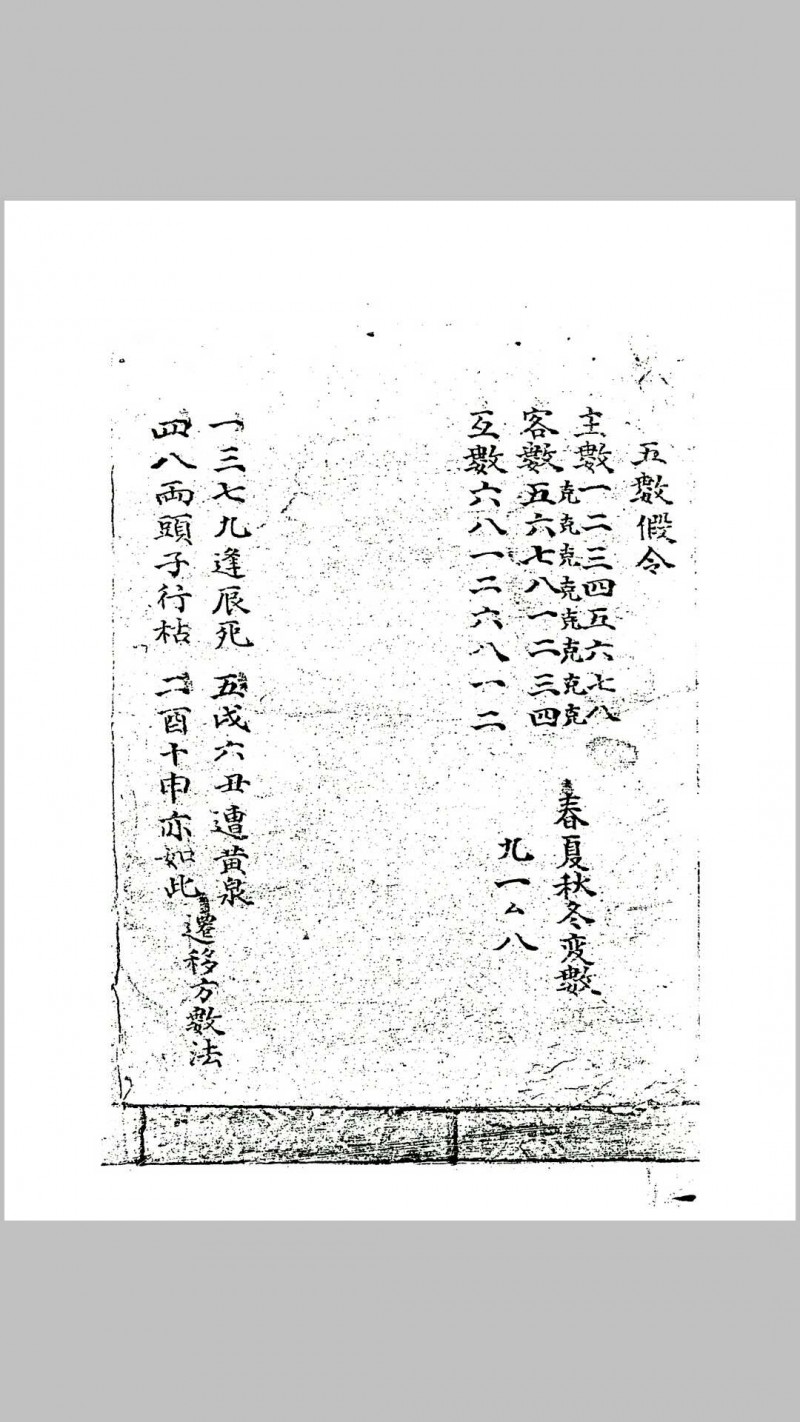 五數假令
主數一二三四五六七八
克克克克克克克克
客數五六七八一二三四
互數六八一二六八一二
春夏秋冬変數
九一厶八
一三七九逢辰死 五戌六丑遭黄泉
四八両頭子行枯 二酉十申亦如此
遷移方數法